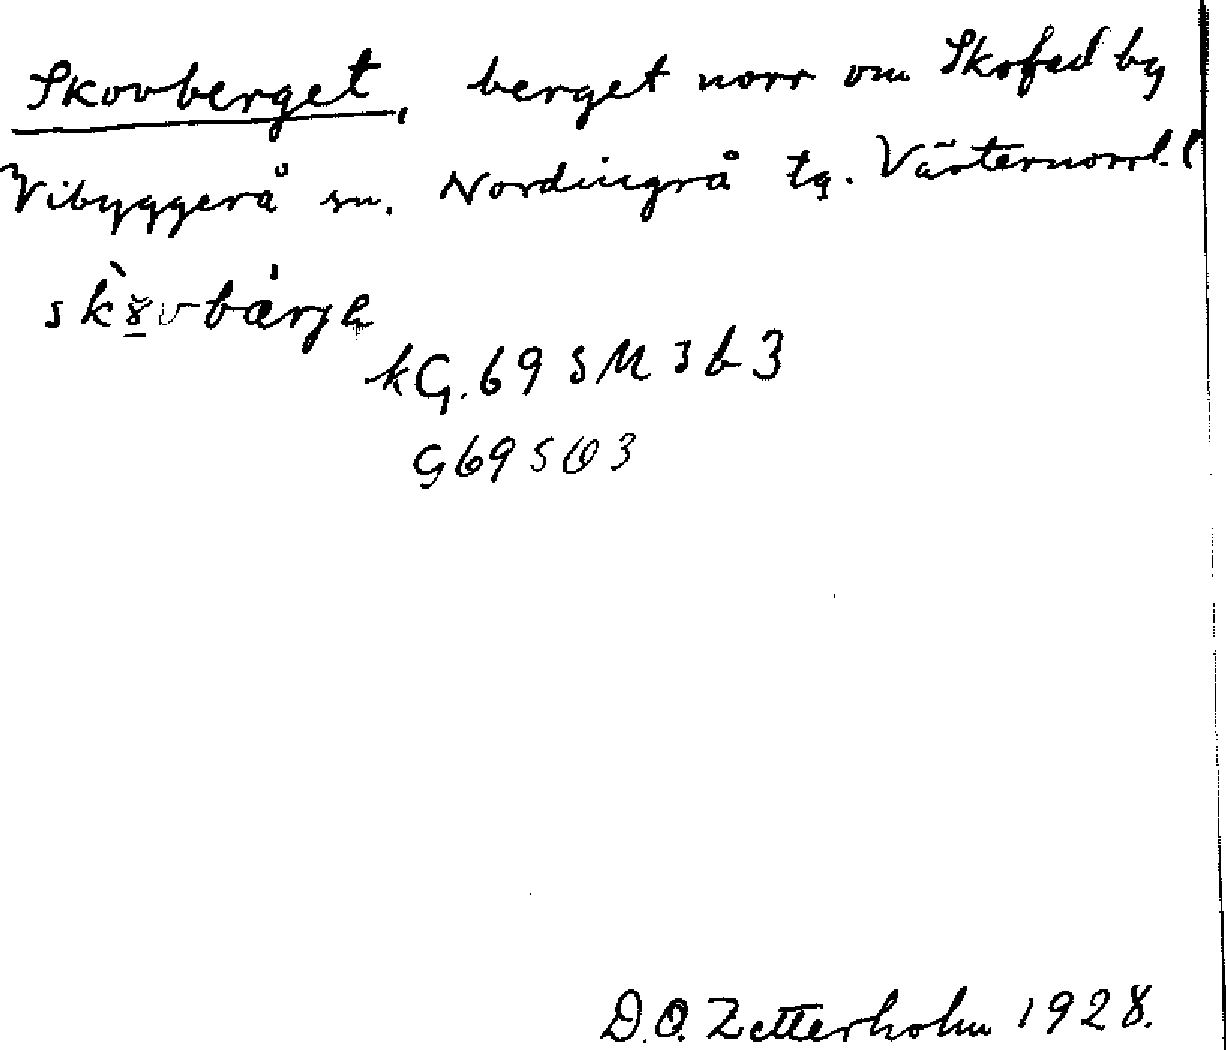 Skovberget, berget norr om Skofed by
Vibyggerå sn. Nordingrå tg. Västernorrl. l
kG. 69 5 M 3 b 3
G 69 5 Ö 3
D. O. Zetterholm 1928.